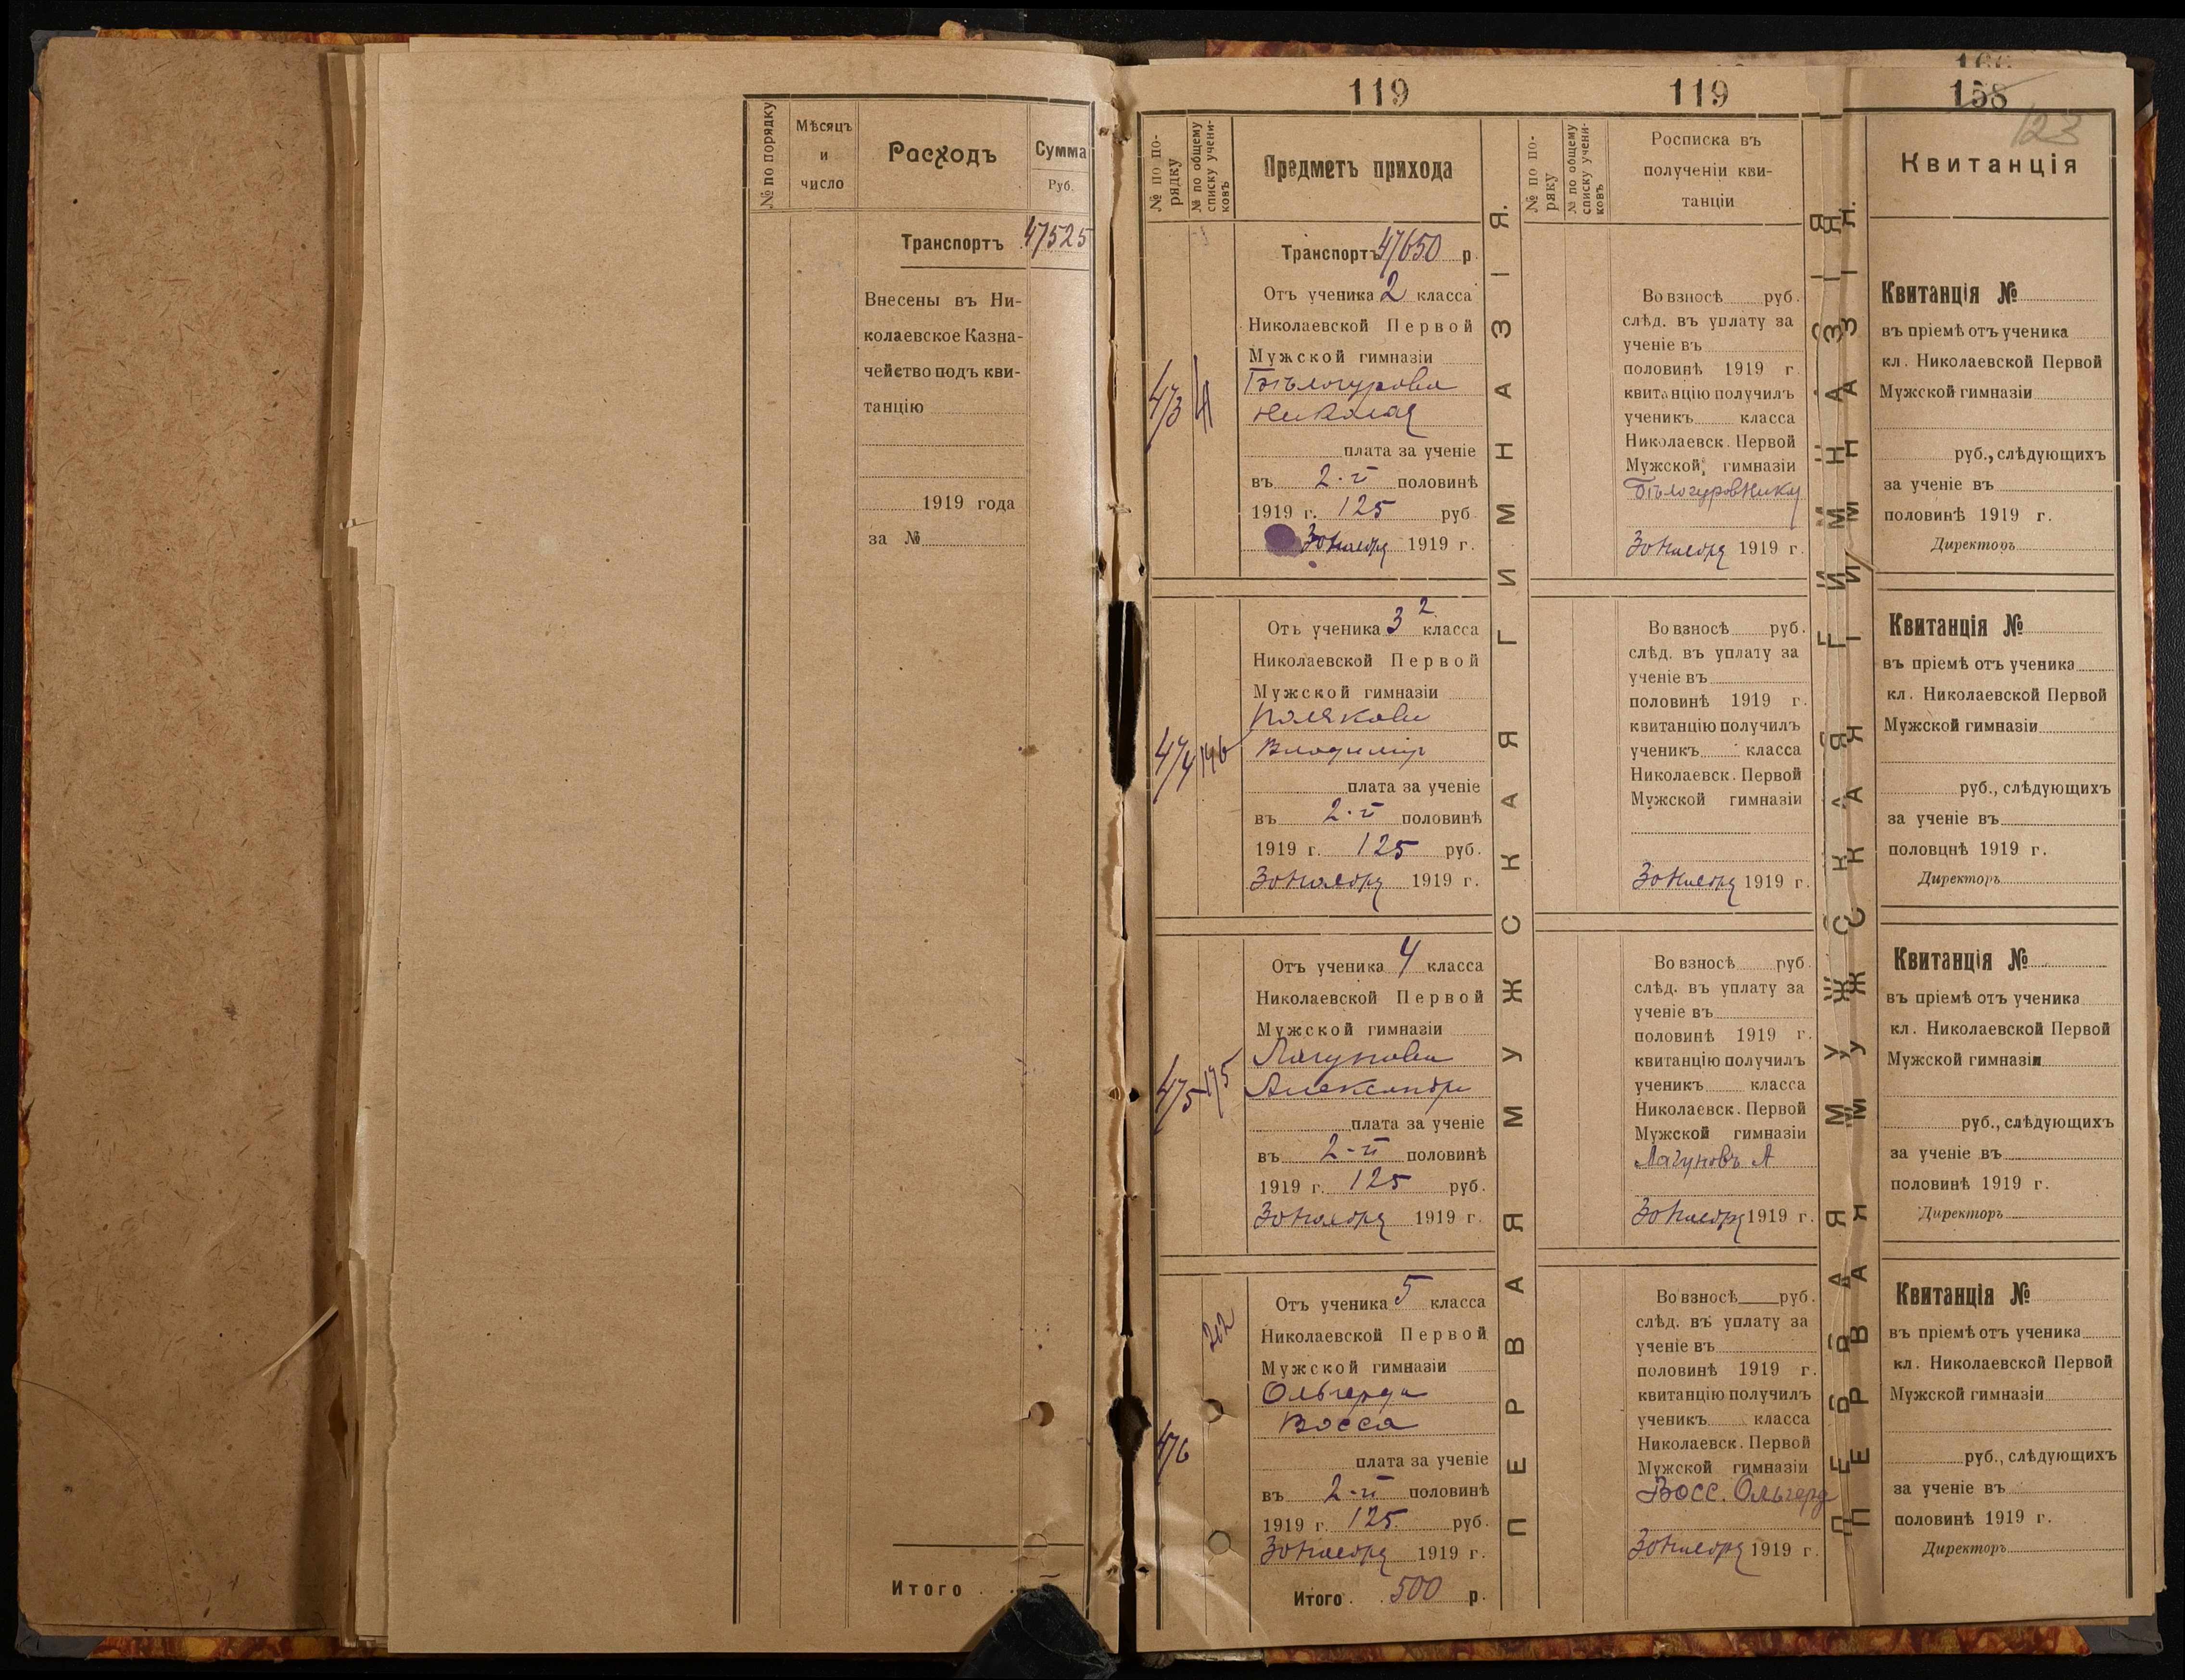 № по порядку
Мѣсяцъ
и
число
Расходъ
Сумма
Руб.
Транспортъ 47525
Внесены въ Ни-
колаевское Казна-
чейство подъ кви-
танцію
1919 года
за №
Итого
119
№ по по-
рядку
№ по общему
списку учени-
ковъ
Предметъ прихода
Транспортъ 47650 р.
473
Отъ ученика 2 класса
Николаевской Первой
Мужской гимназіи
Бѣлогурова
Николая
плата за ученіе
въ 2-й половинѣ
1919 г. 125 руб.
30 Ноября 1919 г.
474 146
Отъ ученика 3² класса
Николаевской Первой
Мужской гимназіи
Полякова
Владимір
плата за ученіе
въ 2-й половинѣ
1919 г. 125 руб.
30 Ноября 1919 г.
475 175
Отъ ученика 4 класса
Николаевской Первой
Мужской гимназіи
Лагунова
Александра
плата за ученіе
въ 2-й половинѣ
1919 г. 125 руб.
30 Ноября 1919 г.
476 202
Отъ ученика 5 класса
Николаевской Первой
Мужской гимназіи
Ольгерда
Восса
плата за ученіе
въ 2-й половинѣ
1919 г. 125 руб.
30 Ноября 1919 г.
Итого 500 р.
ПЕРВАЯ МУЖСКАЯ ГИМНАЗІЯ.
119
№ по по-
ряку
№ по общему
списку учени-
ковъ
Росписка въ
полученіи кви-
танціи
Во взносѣ руб.
слѣд. въ уплату за
ученіе въ
половинѣ 1919 г.
квитанцію получилъ
ученикъ класса
Николаевск. Первой
Мужской гимназіи
Бѣлогуров
30 Ноября 1919 г.
Во взносѣ руб.
слѣд. въ уплату за
ученіе въ
половинѣ 1919 г.
квитанцію получилъ
ученикъ класса
Николаевск. Первой
Мужской гимназіи
30 Ноября 1919 г.
Во взносѣ руб
слѣд. въ уплату за
ученіе въ
половинѣ 1919 г.
квитанцію получилъ
ученикъ класса
Николаевск. Первой
Мужской гимназіи
Лагуновъ А
30 Ноября 1919 г.
Во взносѣ руб.
слѣд. въ уплату за
ученіе въ
половинѣ 1919 г.
квитанцію получилъ
ученикъ класса
Николаевск. Первой
Мужской гимназіи
Восс. Ольгерд
30 Ноября 1919 г.
ПЕРВАЯ МУЖСКАЯ ГИМНАЗІЯ
ПЕРВАЯ МУЖСКАЯ ГИМНАЗІЯ.
166
158
123
Квитанція
Квитанція №
въ пріемѣ отъ ученика
кл. Николаевской Первой
Мужской гимназіи
руб., слѣдующихъ
за ученіе въ
половинѣ 1919 г.
Директоръ
Квитанція №
въ пріемѣ отъ ученика
кл. Николаевской Первой
Мужской гимназіи
руб., слѣдующихъ
за ученіе въ
половцнѣ 1919 г.
Директоръ
Квитанція №
въ пріемѣ отъ ученика
кл. Николаевской Первой
Мужской гимназіи
руб., слѣдующихъ
за ученіе въ
половинѣ 1919 г.
Директоръ
Квитанція №
въ пріемѣ отъ ученика
кл. Николаевской Первой
Мужской гимназіи
руб., слѣдующихъ
за ученіе въ
половинѣ 1919 г.
Директоръ